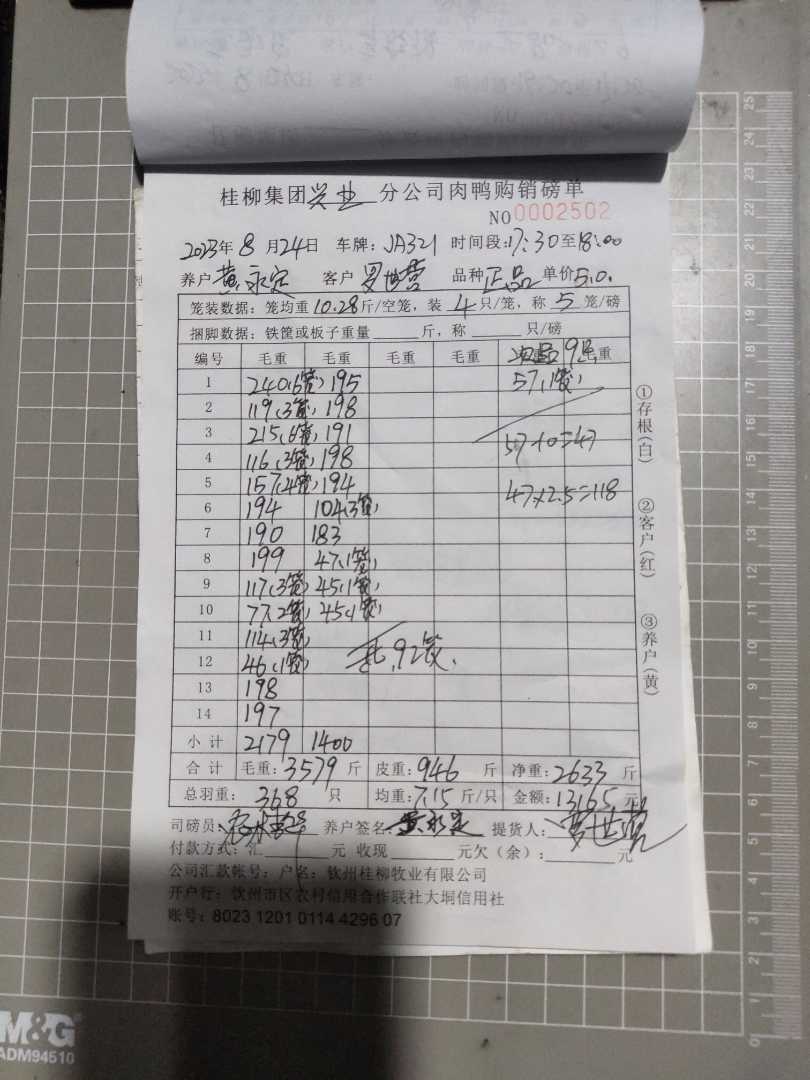 桂柳集团兴业分公司肉鸭购销磅单
NO0002502
2023年8月24日 车牌:JA321 时间段:17:30至18:00
养户黄永定 客户罗世营 品种正品 单价5.0.
笼装数据:笼均重10.28斤/空笼,装4只/笼,称5笼/磅
捆脚数据:铁筐或板子重量 斤,称 只/磅
编号 毛重 毛重 毛重 毛重 次品9只 毛重
1 240(6笼) 195 57(1笼)
2 119(3笼) 198
3 215(6笼) 191 57-10=47
4 116(3笼) 198
5 157(4笼) 194 47×2.5=118
6 194 104(3笼)
7 190 183
8 199 47(1笼)
9 117(3笼) 45(1笼)
10 77(2笼) 45(1笼)
11 114(3笼)
12 46(1笼) 共92笼.
13 198
14 197
小计 2179 1400
合计 毛重:3579斤 皮重:946斤 净重:2633斤
总羽重: 368 只 均重:7.15斤/只 金额:13165元
司磅员: 养户签名:黄永定 提货人:罗世营
付款方式:汇 元 收现 元欠(余): 元
公司汇款帐号:户名:钦州桂柳牧业有限公司
开户行:钦州市区农村信用合作联社大垌信用社
账号:8023 1201 0114 4296 07
①存根(白)
②客户(红)
③养户(黄)
M&G
ADM94510
25
24
23
22
21
20
19
18
17
16
15
14
13
12
11
10
9
8
7
6
5
4
3
2
1
0